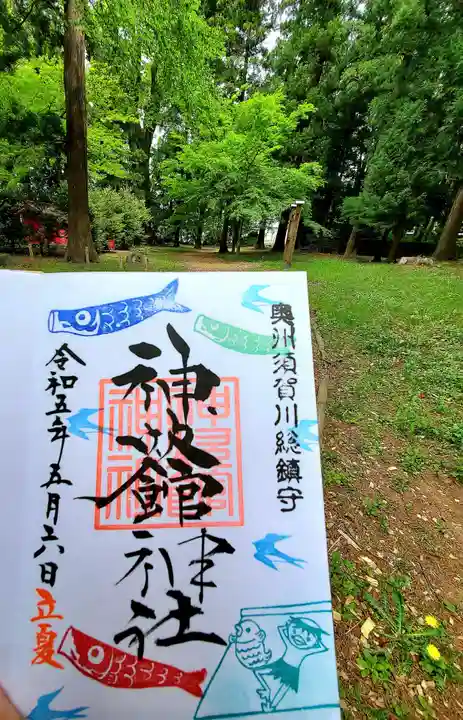 奥州須賀川総鎮守
神炊館神社
令和五年五月六日 立夏